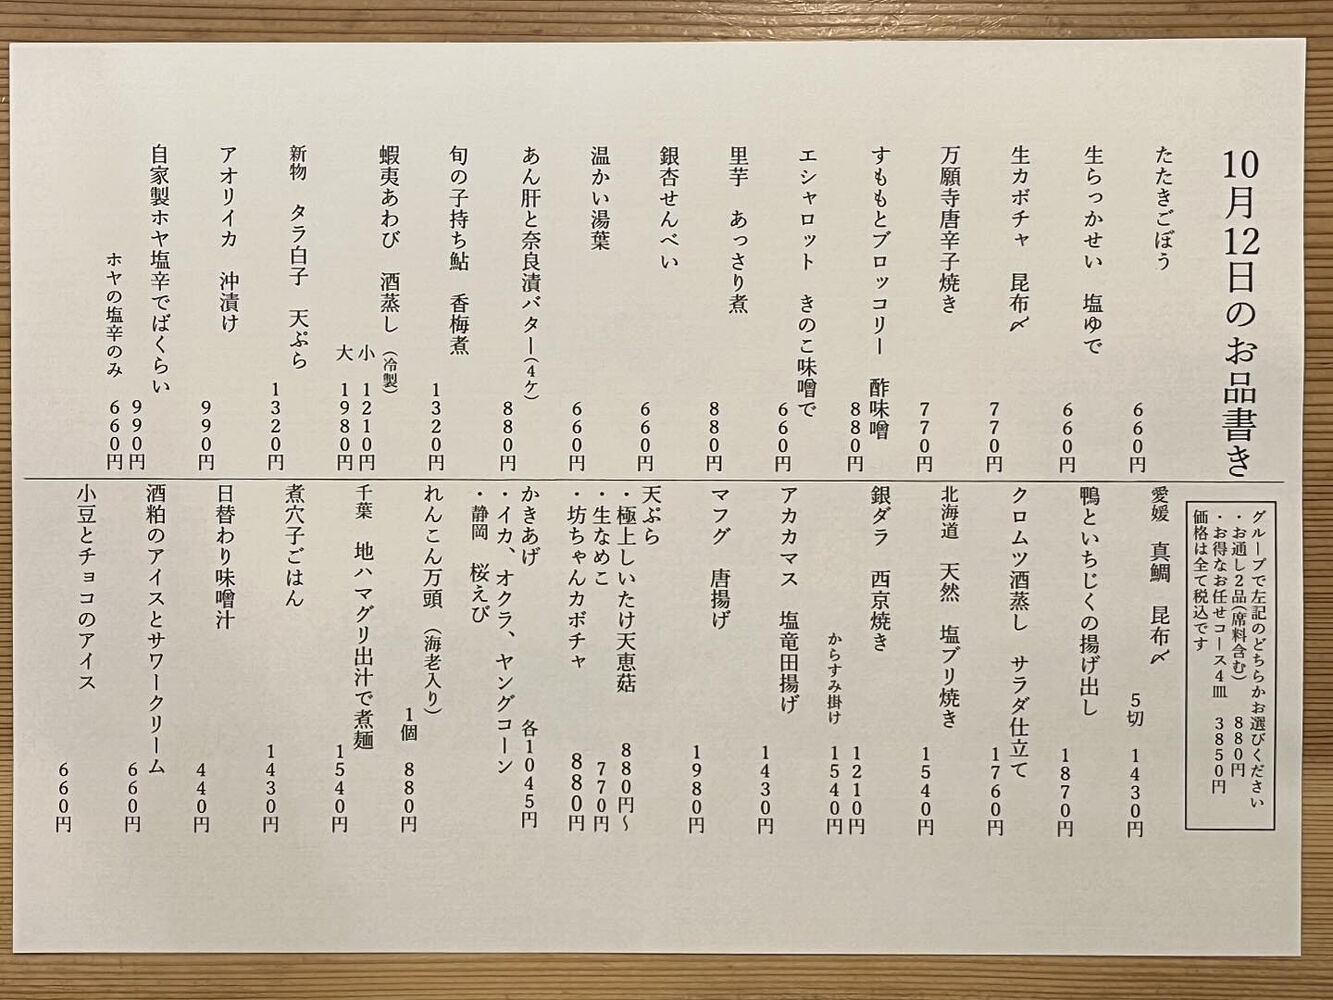 10月12日のお品書き
たたきごぼう
660円
生らっかせい 塩ゆで
660円
生カボチャ 昆布〆
770円
万願寺唐辛子焼き
770円
すももとブロッコリー 酢味噌
880円
エシャロット きのこ味噌で
660円
里芋 あっさり煮
880円
銀杏せんべい
660円
温かい湯葉
660円
あん肝と奈良漬バター(4ケ)
880円
旬の子持ち鮎 香梅煮
1320円
蝦夷あわび 酒蒸し (冷製)
小 1210円
大 1980円
新物 タラ白子 天ぷら
1320円
アオリイカ 沖漬け
990円
自家製ホヤ塩辛でばくらい
990円
ホヤの塩辛のみ 660円
グループで左記のどちらかお選びください
・お通し2品(席料含む) 880円
・お得なお任せコース4皿 3850円
価格は全て税込です
愛媛 真鯛 昆布〆
5切 1430円
鴨といちじくの揚げ出し
1870円
クロムツ酒蒸し サラダ仕立て
1760円
北海道 天然 塩ブリ焼き
1540円
銀ダラ 西京焼き
1210円
からすみ掛け 1540円
アカカマス 塩竜田揚げ
1430円
マフグ 唐揚げ
1980円
天ぷら
・極上しいたけ天恵菇 880円~
・生なめこ 770円
・坊ちゃんカボチャ 880円
かきあげ 各1045円
・イカ、オクラ、ヤングコーン
・静岡 桜えび
れんこん万頭 (海老入り)
1個 880円
千葉 地ハマグリ出汁で煮麺
1540円
煮穴子ごはん
1430円
日替わり味噌汁
440円
酒粕のアイスとサワークリーム
660円
小豆とチョコのアイス
660円